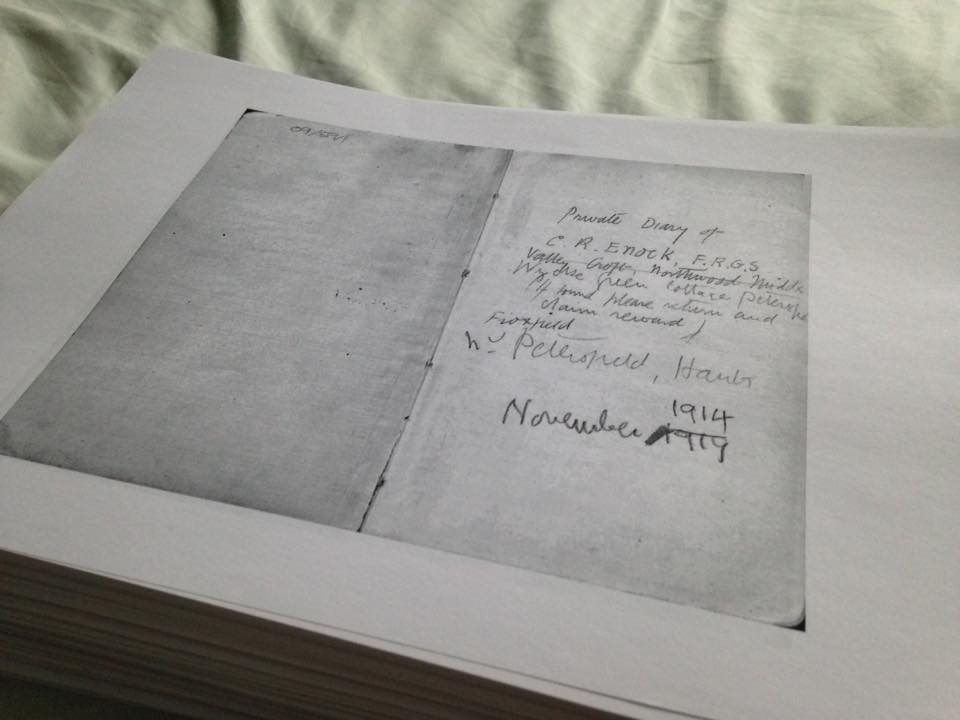 Private Diary of
C. R. ENOCK, F.R.G.S
Valley Croft, Northwood Middx
Wyldse Green Cottage Petersfie
if found please return and
claim reward)
Froxfield
Nr Petersfield, Hants
November 1914
1919